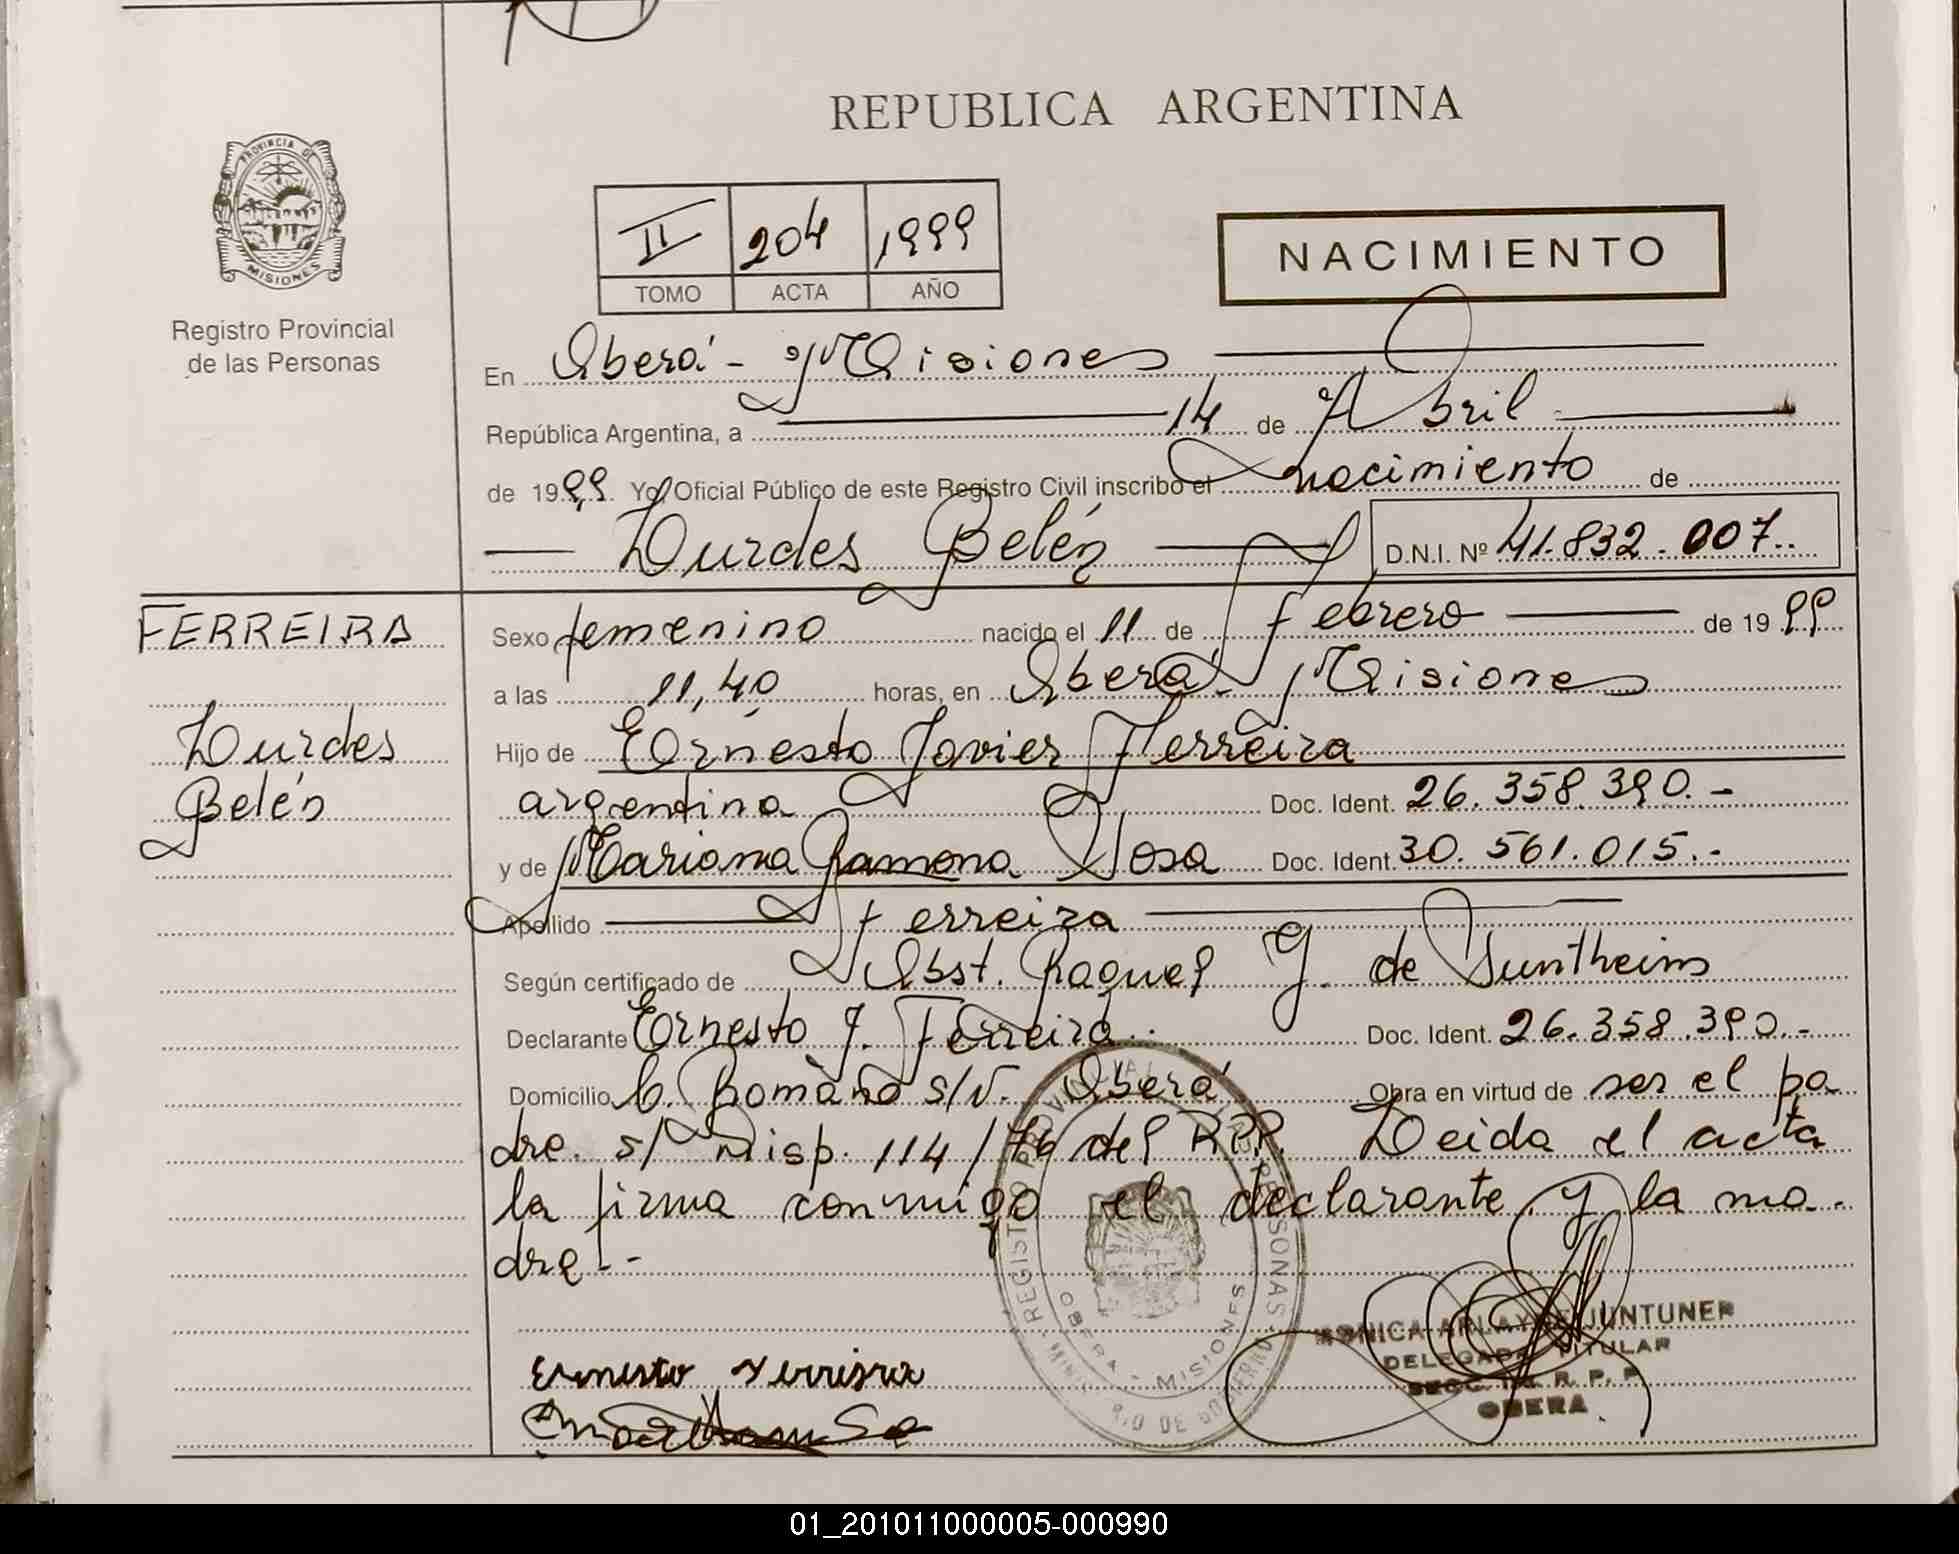 REPUBLICA ARGENTINA
PROVINCIA DE
MISIONES
Registro Provincial
de las Personas
II 204 1999
TOMO ACTA AÑO
NACIMIENTO
En Oberá - Misiones
República Argentina, a 14 de Abril
de 1999 Yo, Oficial Público de este Registro Civil inscribo el nacimiento de
Lurdes Belén D.N.I. Nº 41.832.007..
FERREIRA
Lurdes
Belén
Sexo femenino nacido el 11 de febrero de 1999
a las 11,40 horas, en Oberá - Misiones
Hijo de Ernesto Javier Ferreira
argentina Doc. Ident. 26.358.390.-
y de Mariana Ramona Sosa Doc. Ident. 30.561.015.-
Apellido Ferreira
Según certificado de Obst. Raquel G. de
Declarante Ernesto J. Ferreira Doc. Ident. 26.358.390.-
Domicilio C. Romano s/N. Oberá Obra en virtud de ser el pa
dre. s/ Disp. 114/76 del RPP. Leida el acta
la firma conmigo el declarante y la ma-
dre.-
REGISTRO PROVINCIAL DE LAS PERSONAS
OBERA - MISIONES
MINISTERIO DE GOBIERNO
Ernesto Ferreira
JUNTUNER
DELEGADA TITULAR
R. P. P.
OBERA
01_201011000005-000990